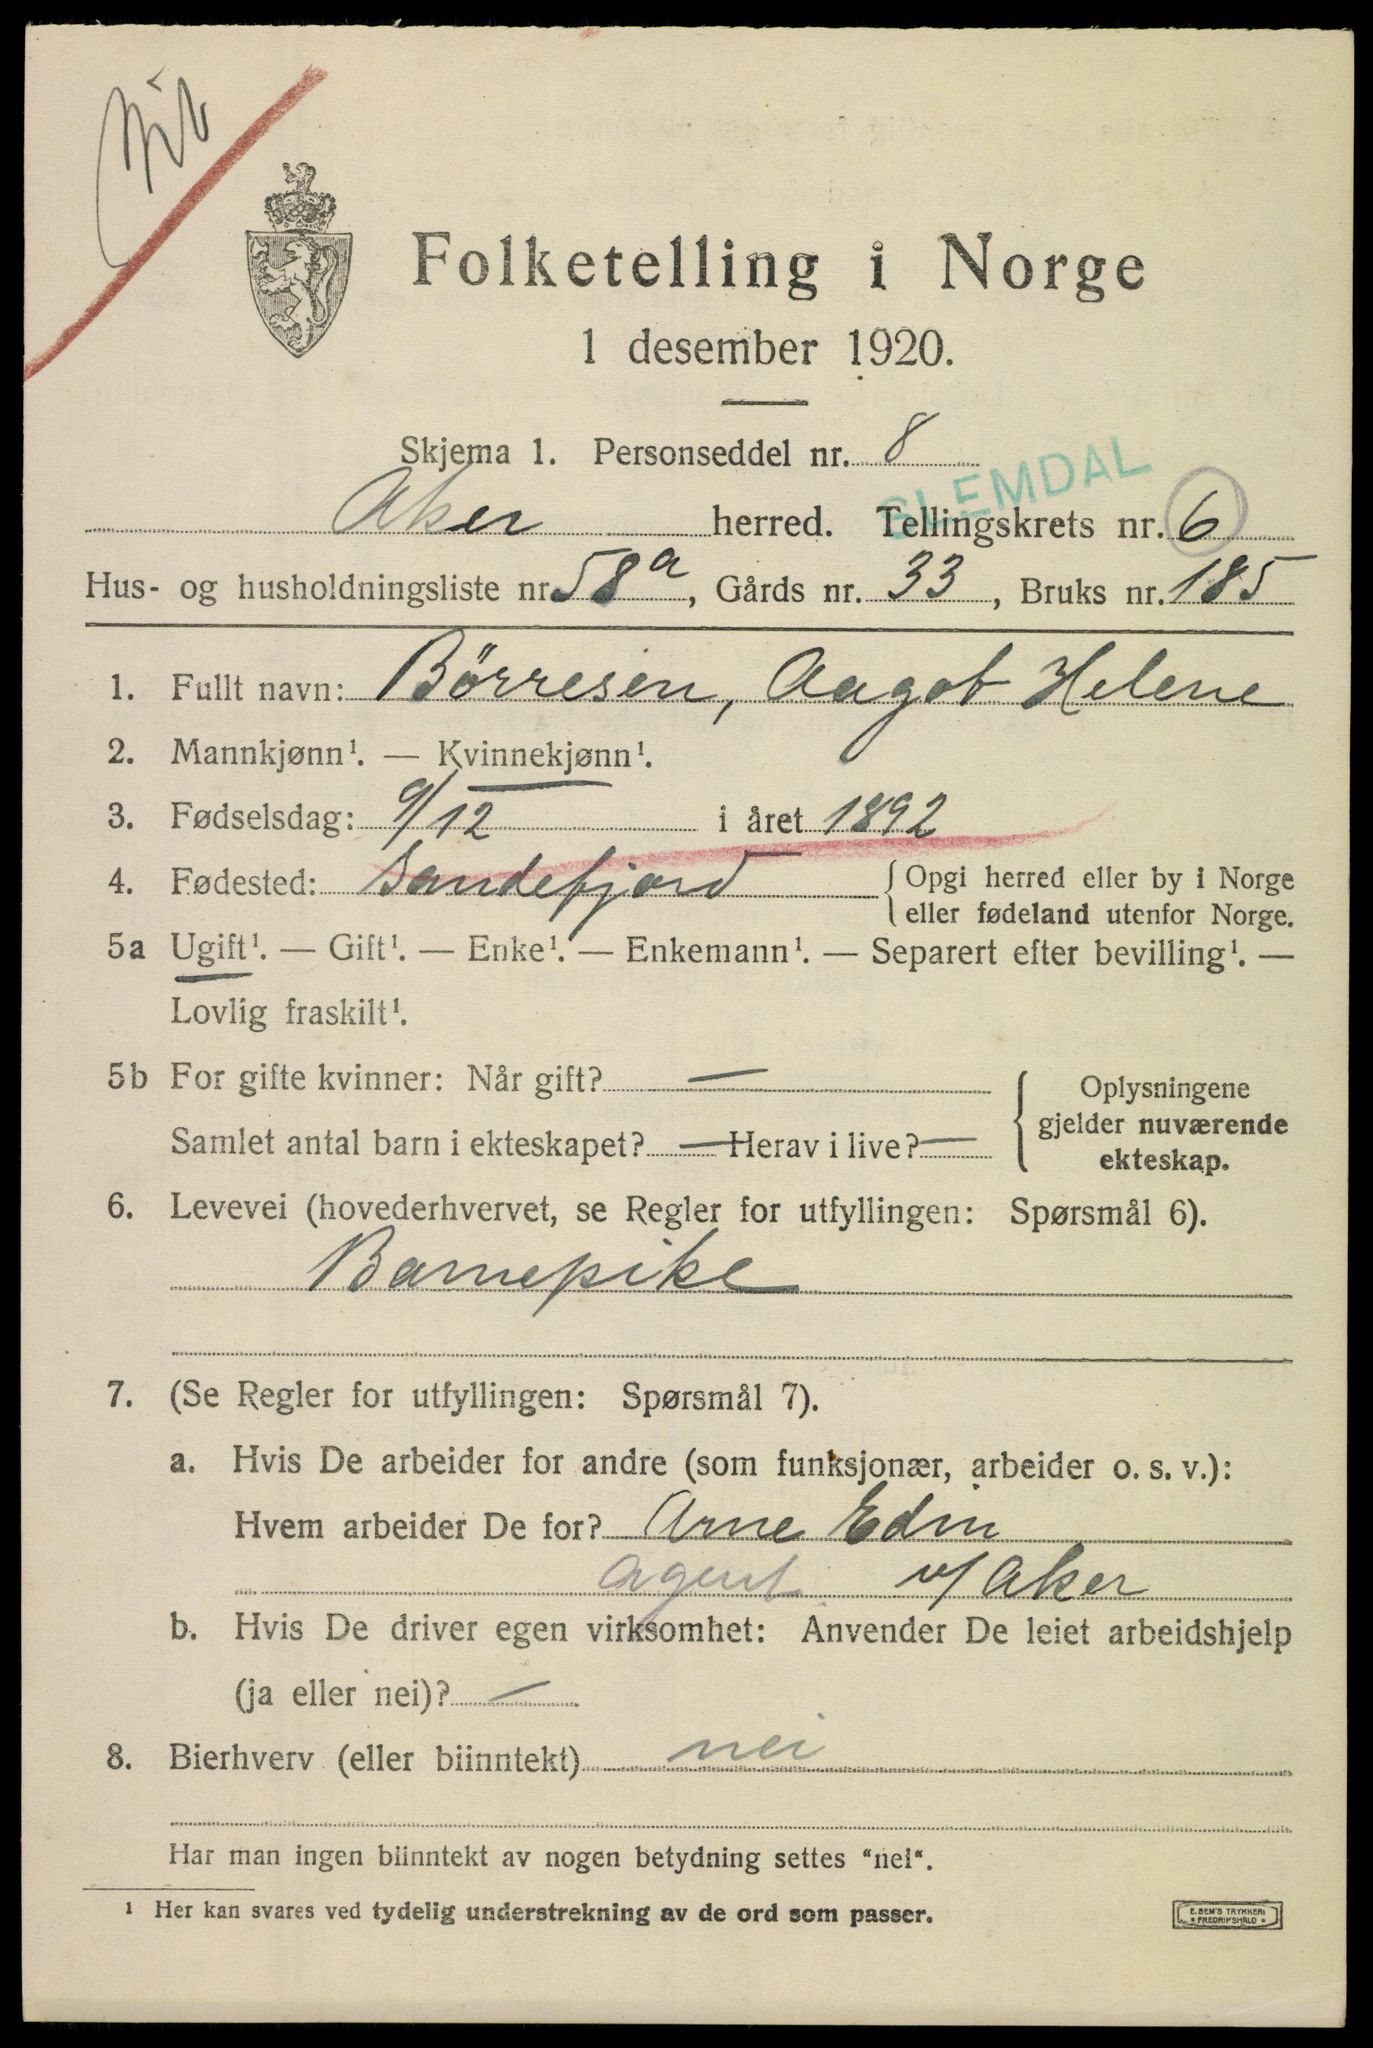 Folketelling i Norge
1 desember 1920.
Skjema 1. Personseddel nr. 8
SLEMDAL
Aker herred. Tellingskrets nr. 6
Hus- og husholdningsliste nr. 58a, Gårds nr. 33, Bruks nr. 185
1. Fullt navn: Børresen, Aagot Helene
2. Mannkjønn¹. — Kvinnekjønn¹.
3. Fødselsdag: 9/12 i året 1892
4. Fødested: Sandefjord {Opgi herred eller by i Norge
eller fødeland utenfor Norge.
5a Ugift¹. — Gift¹. — Enke¹. — Enkemann¹. — Separert efter bevilling¹. —
Lovlig fraskilt¹.
5b For gifte kvinner: Når gift? —
Samlet antal barn i ekteskapet? — Herav i live? —
Oplysningene
gjelder nuværende
ekteskap.
6. Levevei (hovederhvervet, se Regler for utfyllingen: Spørsmål 6).
Barnepike
7. (Se Regler for utfyllingen: Spørsmål 7).
a. Hvis De arbeider for andre (som funksjonær, arbeider o. s. v.):
Hvem arbeider De for? Arne Edin
agent v/ Aker
b. Hvis De driver egen virksomhet: Anvender De leiet arbeidshjelp
(ja eller nei)? —
8. Bierhverv (eller biinntekt) nei
Har man ingen biinntekt av nogen betydning settes "nei".
¹ Her kan svares ved tydelig understrekning av de ord som passer.
E. SEM'S TRYKKERI
• FREDRIKSHALD •